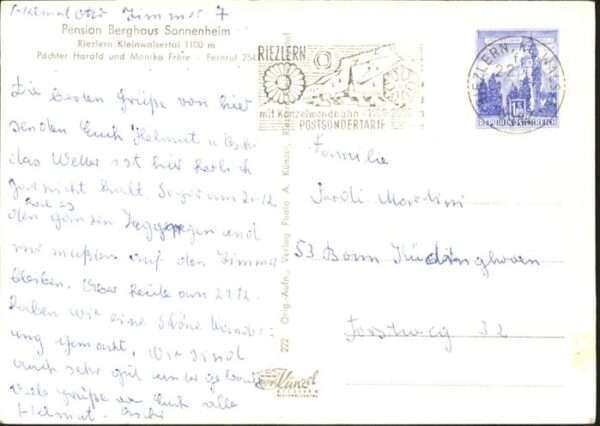 Zimmer 7
Pension Berghaus Sonnenheim
Riezlern Kleinwalsertal 1100 m
Pächter Harald und Monika Frère - Fernruf 254
RIEZLERN
mit Kanzelwandbahn
POSTSONDERTARIF
RIEZLERN
REPUBLIK ÖSTERREICH
Die besten Grüße von hier
senden Euch Helmut u.
das Wetter ist hier herlich
gar nicht kalt am 20.12
den ganzen Tag und
wir mußten auf den Zimmer
bleiben. Aber heute am 21.12.
haben wir eine schöne Wander-
ung gemacht, wir sind
auch sehr gut unter gebracht
viele grüße an Euch alle
Helmut
222 Orig.-Aufn., Verlag Photo A. Künzel, Riezlern
Künzel
Familie
53 Bonn Küdinghoven
Forstweg 32